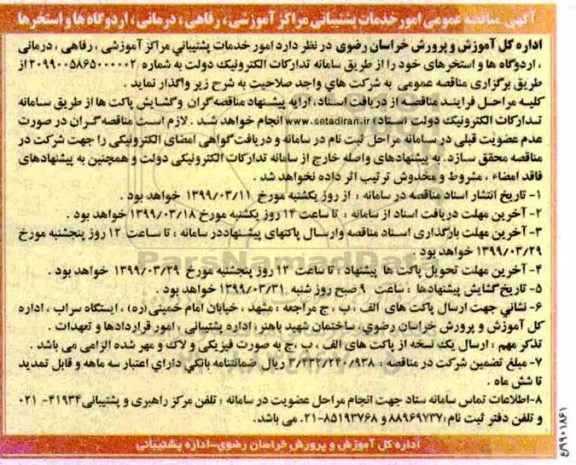 آگهی مناقصه عمومی امور خدمات پشتیبانی مراکز آموزشی ، رفاهی ، درمانی ، اردوگاه ها و استخرها
اداره کل آموزش و پرورش خراسان رضوی در نظر دارد امور خدمات پشتیبانی مراکز آموزشی ، رفاهی ، درمانی
، اردوگاه ها و استخرهای خود را از طریق سامانه تدارکات الکترونیک دولت به شماره ۲۰۹۹۰۰۵۸۶۵۰۰۰۰۰۲ از
طریق برگزاری مناقصه عمومی به شرکت های واجد صلاحیت به شرح زیر واگذار نماید .
کلیه مراحل فرایند مناقصه از دریافت اسناد ، ارایه پیشنهاد مناقصه گران وگشایش پاکت ها از طریق سامانه
تدارکات الکترونیک دولت (ستاد) www.setadiran.ir انجام خواهد شد . لازم است مناقصه گران در صورت
عدم عضویت قبلی در سامانه مراحل ثبت نام در سامانه و دریافت گواهی امضای الکترونیکی را جهت شرکت در
مناقصه محقق سازد. به پیشنهادهای واصله خارج از سامانه تدارکات الکترونیکی دولت و همچنین به پیشنهادهای
فاقد امضاء ، مشروط و مخدوش ترتیب اثر داده نخواهد شد .
۱- تاریخ انتشار اسناد مناقصه در سامانه : از روز یکشنبه مورخ ۱۳۹۹/۰۳/۱۱ خواهد بود .
۲- آخرین مهلت دریافت اسناد از سامانه : تا ساعت ۱۴ روز یکشنبه مورخ ۱۳۹۹/۰۳/۱۸ خواهد بود .
۳- آخرین مهلت بارگذاری اسناد مناقصه وارسال پاکتهای پیشنهاددر سامانه : تا ساعت ۱۲ روز پنجشنبه مورخ
۱۳۹۹/۰۳/۲۹ خواهد بود .
۴- آخرین مهلت تحویل پاکت ها پیشنهاد : تا ساعت ۱۲ روز پنجشنبه مورخ ۱۳۹۹/۰۳/۲۹ خواهد بود .
۵- تاریخ گشایش پیشنهادها : ساعت ۹ صبح روز شنبه ۱۳۹۹/۰۳/۳۱ خواهد بود .
۶- نشانی جهت ارسال پاکت های الف ، ب ، ج مراجعه : مشهد ، خیابان امام خمینی (ره) ، ایستگاه سراب ، اداره
کل آموزش و پرورش خراسان رضوی، ساختمان شهید باهنر، اداره پشتیبانی ، امور قراردادها و تعهدات .
تذکر مهم : ارسال یک نسخه از پاکت های الف ، ب ،ج به صورت فیزیکی و لاک و مهر شده الزامی می باشد .
۷- مبلغ تضمین شرکت در مناقصه : ۲/۴۳۲/۲۴۰/۹۳۸ ریال ضمانتنامه بانکی دارای اعتبار سه ماهه و قابل تمدید
تا شش ماه .
۸-اطلاعات تماس سامانه ستاد جهت انجام مراحل عضویت در سامانه : تلفن مرکز راهبری و پشتیبانی۴۱۹۳۴- ۰۲۱
و تلفن دفتر ثبت نام : ۸۸۹۶۹۷۳۷ و ۸۵۱۹۳۷۶۸-۰۲۱ می باشد.
اداره کل آموزش و پرورش خراسان رضوی-اداره پشتیبانی
ParsNamadData